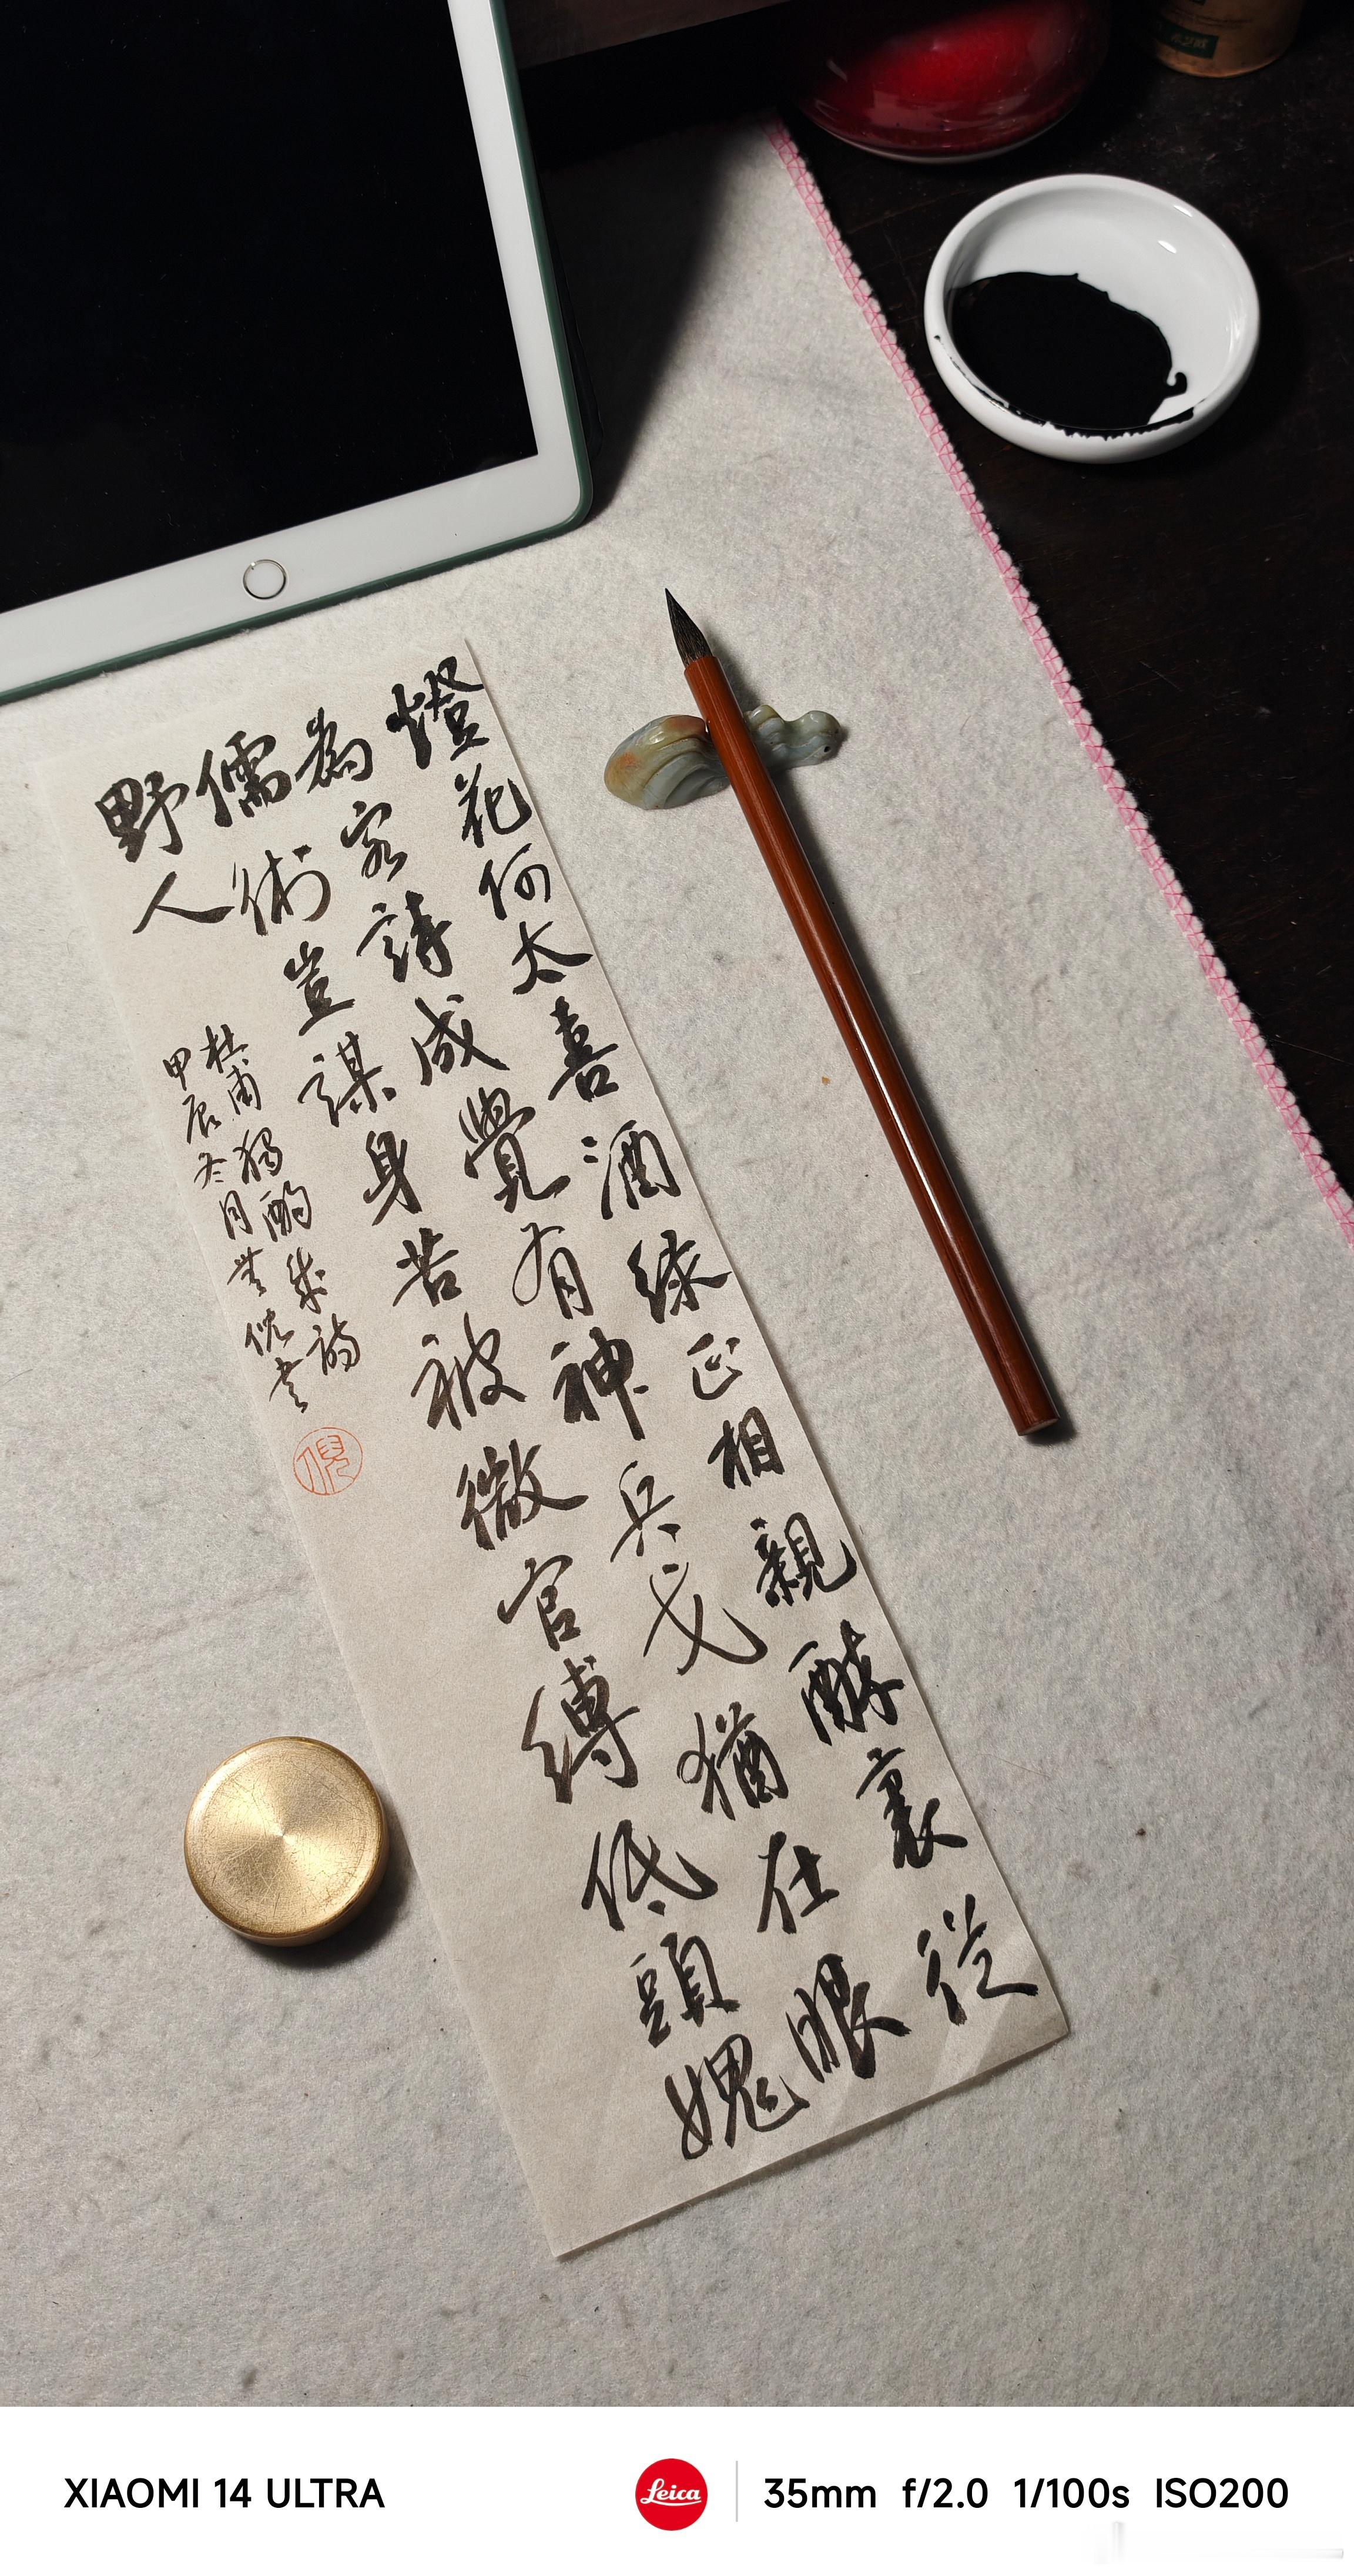 燈花何太喜酒綠正相親醉裏從
為客詩成覺有神兵戈猶在眼
儒術豈謀身苦被微官縛低頭媿
野人
杜甫獨酌成詩
甲辰冬月倪書
倪
XIAOMI 14 ULTRA
Leica
35mm f/2.0 1/100s ISO200